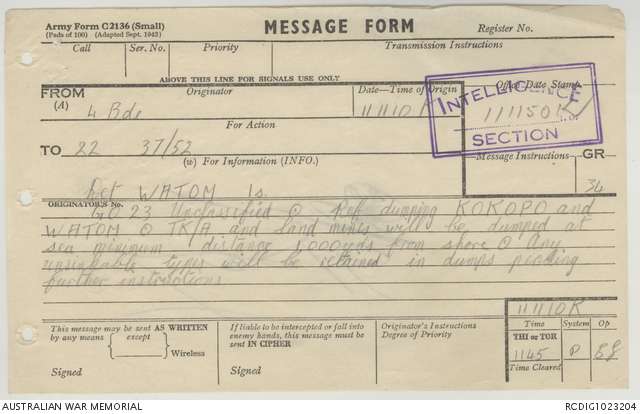 Army Form C2136 (Small)
(Pads of 100) (Adapted Sept. 1942)
MESSAGE FORM
Register No.
Call
Ser. No.
Priority
Transmission Instructions
ABOVE THIS LINE FOR SIGNALS USE ONLY
FROM
(A)
Originator
Date—Time of Origin
Office Date Stamp
4 Bde
111110K
INTELLIGENCE
111150K
SECTION
For Action
TO
22 37/52
(W) For Information (INFO.)
Message Instructions
GR
34
Det WATOM Is
ORIGINATOR'S No.
GO 23 Unclassified @ Ref dumping KOKOPO and
WATOM @ TK/A and Land mines will be dumped at
sea minimum distance 1,000 yds from shore @ Any
types will be retained in dumps pending
further instructions
111110K
This message may be sent AS WRITTEN
by any means
except
Wireless
Signed
If liable to be intercepted or fall into
enemy hands, this message must be
sent IN CIPHER
Signed
Originator's Instructions
Degree of Priority
Time
System
Op
THI or TOR
1145
Time Cleared
AUSTRALIAN WAR MEMORIAL
RCDIG1023204